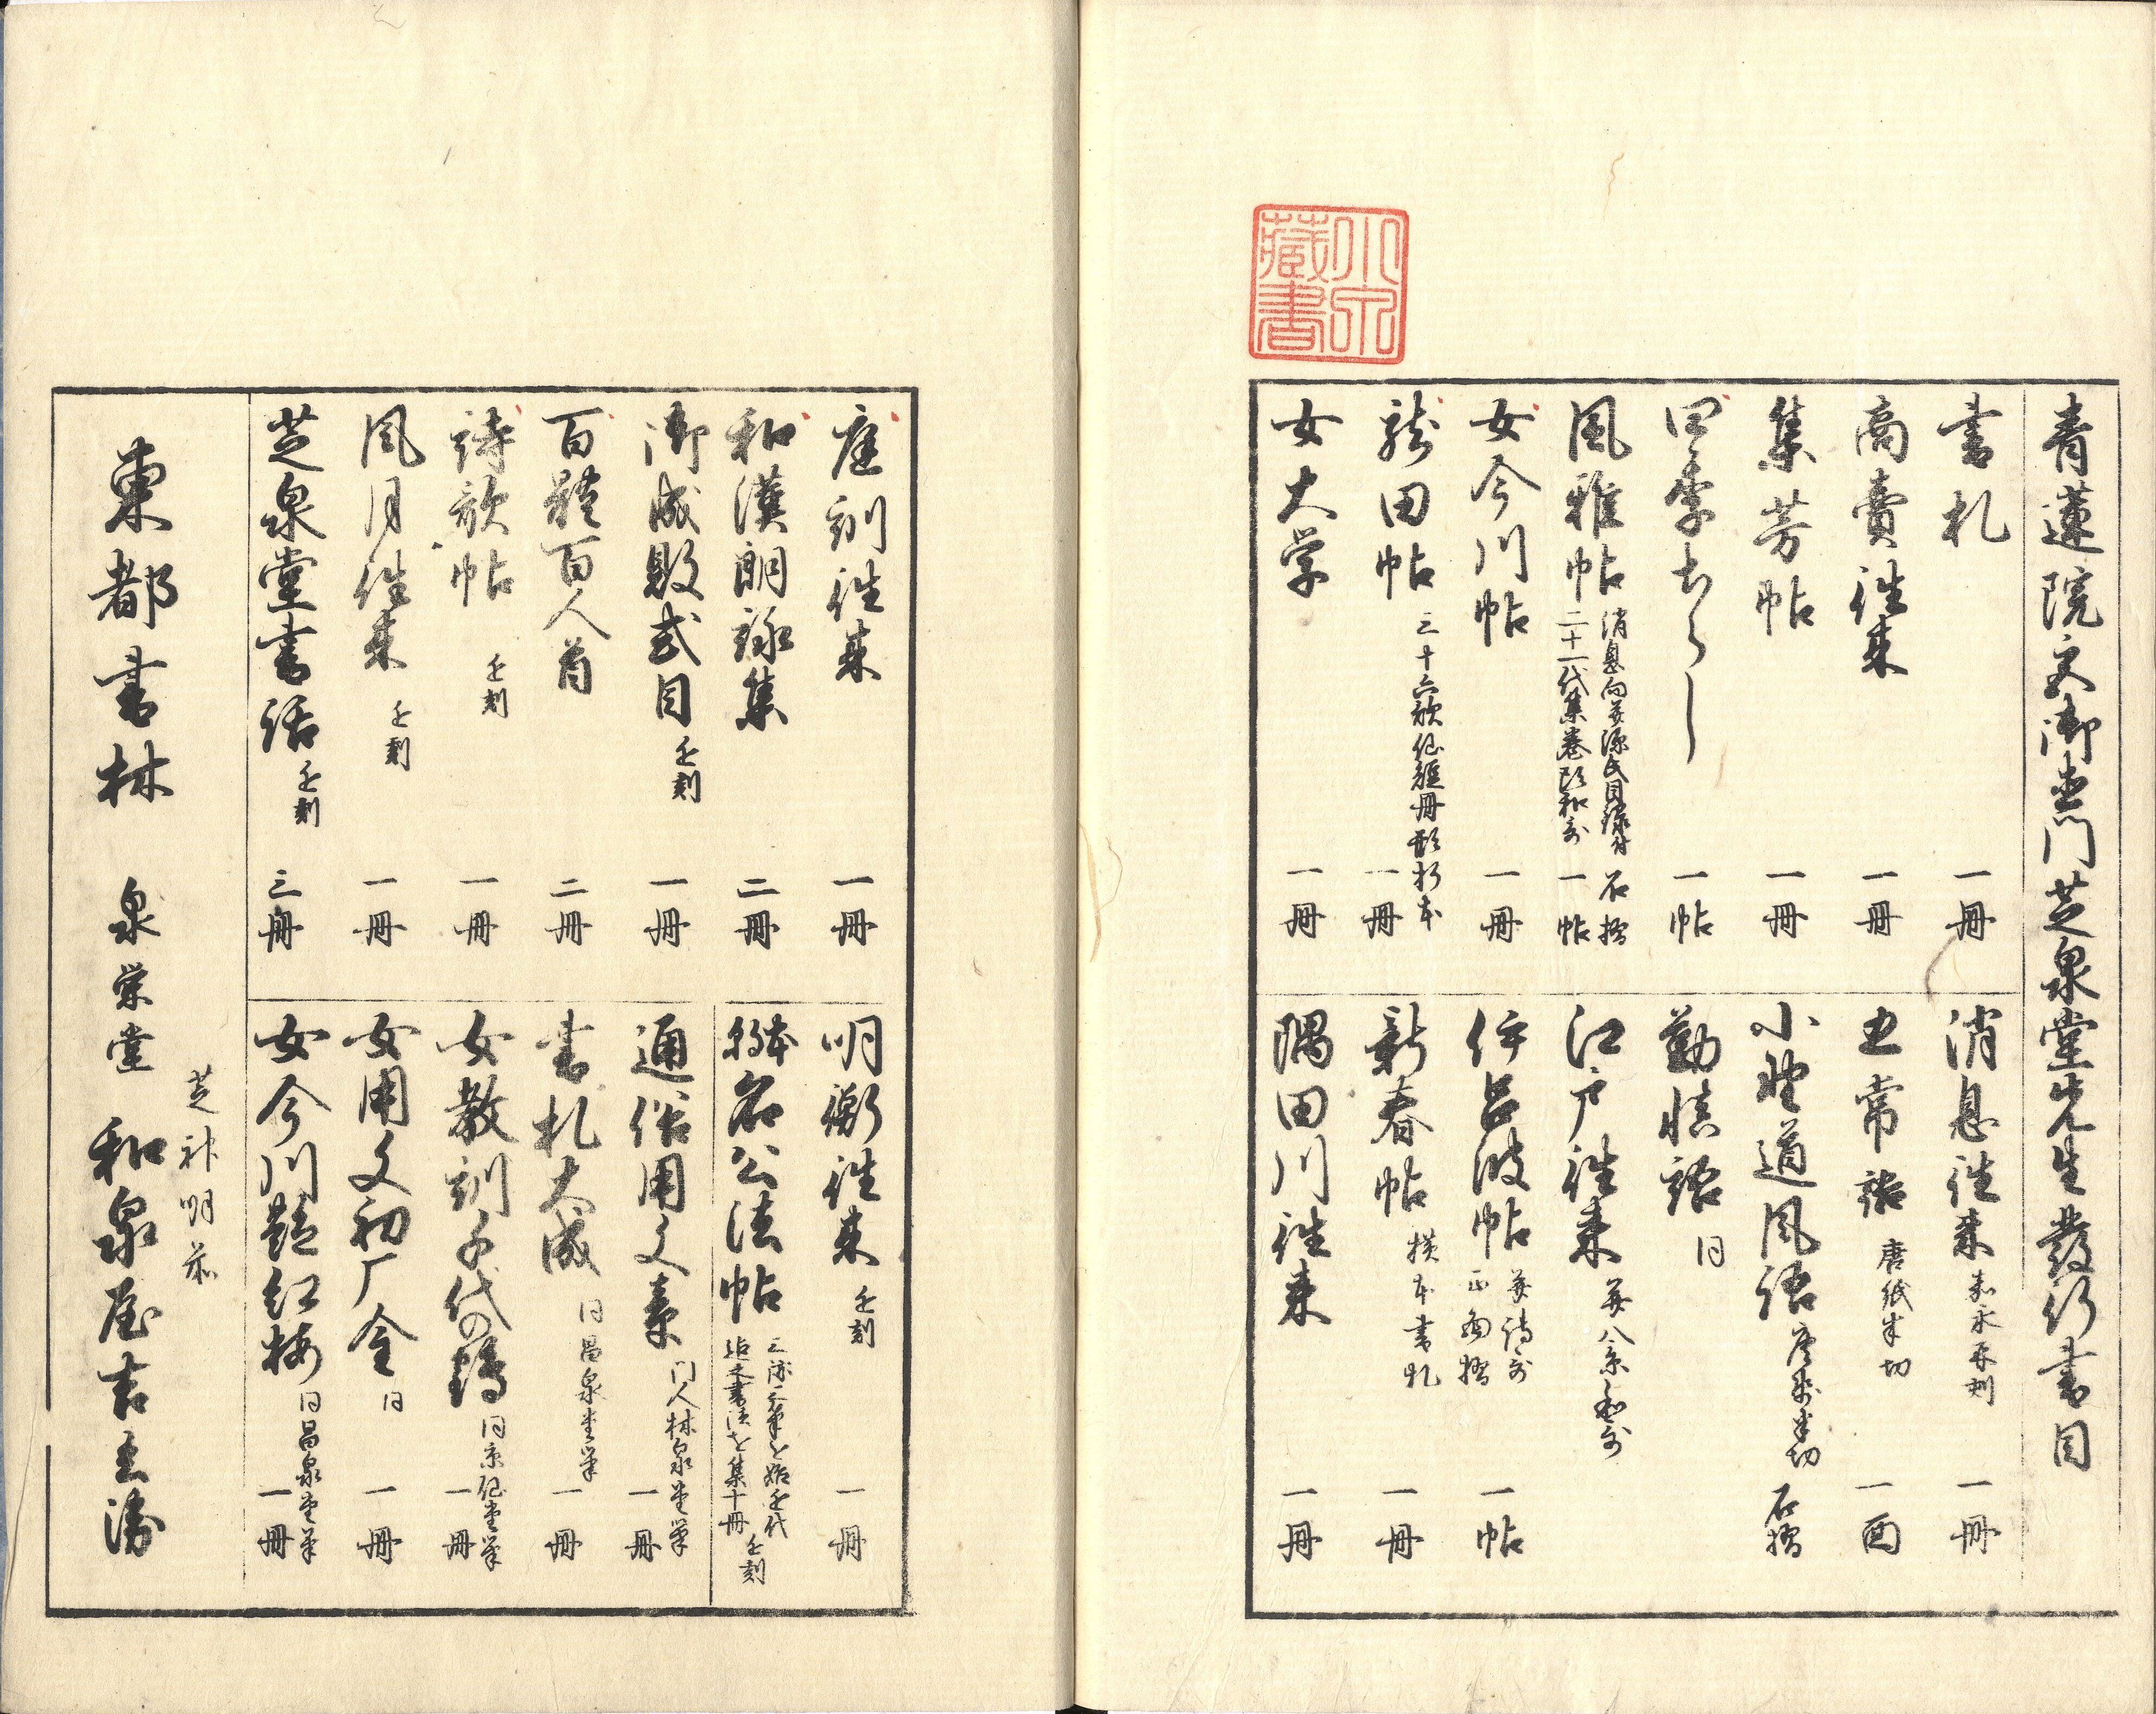 青蓮院文御家門芝泉堂先生發行書目
書札 一冊
商賣往来 一冊
集芳帖 一冊
四季 一帖
風雅帖 消息向并源氏目録 石摺
二十一代集巻頭和歌 一帖
女今川帖 一冊
龍田帖 三十六歌仙短冊形折本 一冊
女大学 一冊
消息往来 嘉永再刻 一冊
五常語 唐紙半切 一面
小野道風語 唐紙半切 石摺
勤慎語 同
江戸往来 并八景和歌
伊呂波帖 并詩歌 正面摺 一帖
新春帖 横本書札 一冊
隅田川往来 一冊
小泉藏書
庭訓往来 一冊
和漢朗詠集 二冊
御成敗式目 近刻 一冊
百聽百人首 二冊
詩歌帖 近刻 一冊
風月往来 近刻 一冊
芝泉堂書話 近刻 三冊
明衡往来 近刻 一冊
名公法帖 三跡三筆を始近代
近之書法を集十冊 近刻
通俗用文章 門人林泉堂筆 一冊
書札大成 同昌泉堂筆 一冊
女教訓千代の鶴 同 一冊
女用文初厂金 同 一冊
女今川艶紅梅 同昌泉堂筆 一冊
芝神明前
東都書林 泉栄堂 和泉屋吉兵衛